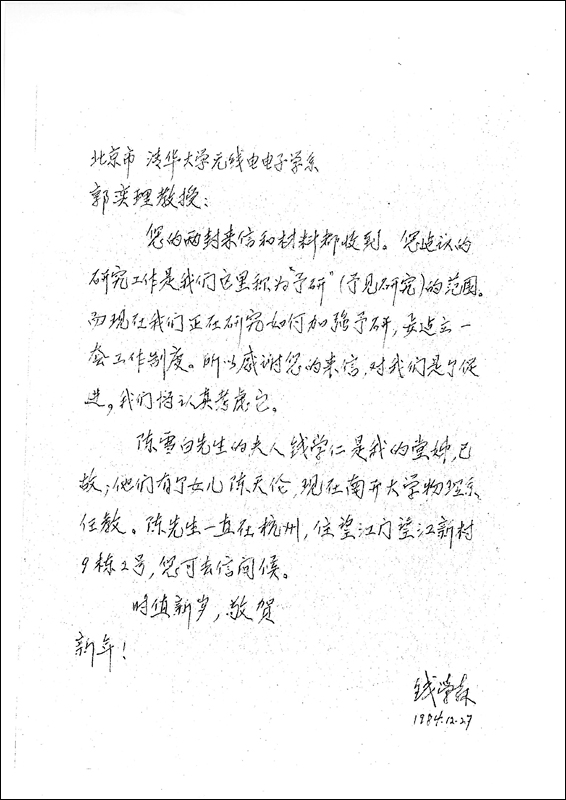 北京市 清华大学无线电电子学系
郭奕理教授：
您的两封来信和材料都收到。您建议的
研究工作是我们这里称为“予研”(予见研究)的范围。
而现在我们正在研究如何加强予研，要建立一
套工作制度。所以感谢您的来信，对我们是个促
进，我们将认真考虑它。
陈雪白先生的夫人钱学仁是我的堂姊，已
故；他们有个女儿陈天伦，现在南开大学物理系
任教。陈先生一直在杭州，住望江门望江新村
9栋2号，您可去信问候。
时值新岁，敬贺
新年！
钱学森
1984.12.27